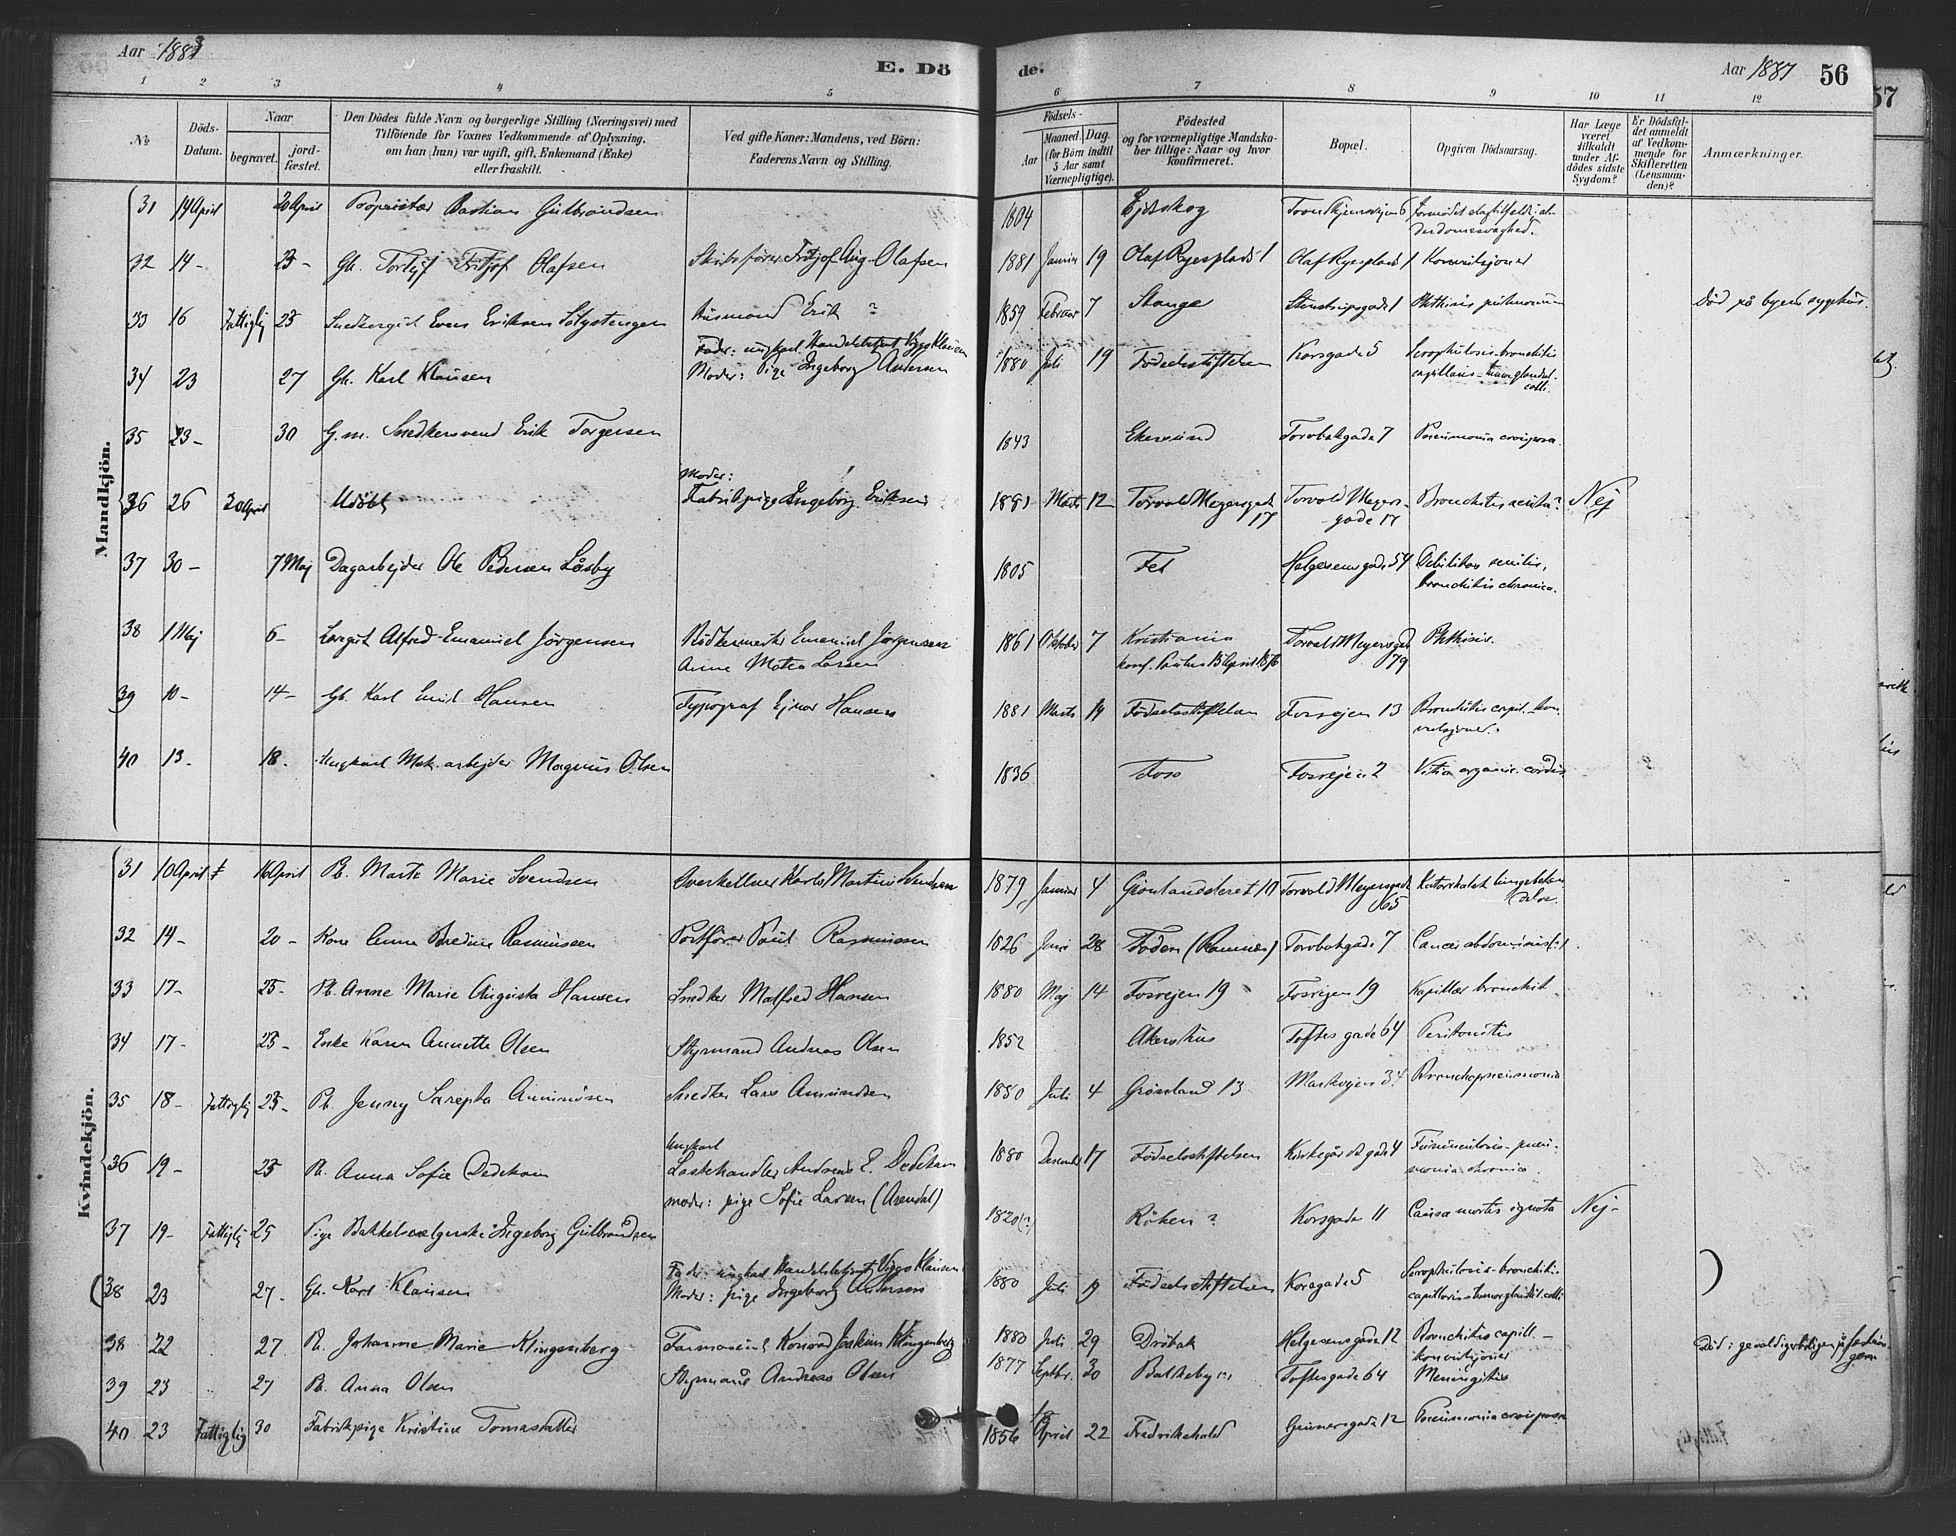 Aar 1883
E. Dö
de.
Aar 1883
56
57
1 2 3 4 5 6 7 8 9 10 11 12
№
Döds-
Datum.
Naar
begravet.
jord-
fæstet.
Den Dödes fulde Navn og borgerlige Stilling (Næringsvei) med
Tilföiende for Voxnes Vedkommende af Oplysning,
om han (hun) var ugift, gift, Enkemand (Enke)
eller fraskilt.
Ved gifte Koner: Mandens, ved Börn:
Faderens Navn og Stilling.
Födsels-
Aar
Maaned. Dag.
(for Börn indtil
5 Aar samt
Værnepligtige).
Födested
og for værnepligtige Mandska-
ber tillige: Naar og hvor
konfirmeret.
Bopæl.
Opgiven Dödsaarsag.
Har Læge
været
tilkaldt
under Af-
dödes sidste
Sygdom?
Er Dödsfal-
det anmeldt
af Vedkom-
mende for
Skifteretten
(Lensman-
den)?
Anmærkninger.
Mandkjön.
31 14 April 20 April Proprietær Bastian Gulbrandsen 1804 Ejdskog
32 14 - 23 - Gh. Fritjof Olafsen Skibsfører Fritjof Aug. Olafsen 1881 Januar 19 Olaf Ryesplads 1 Olaf Ryesplads 1 Konvulsjoner
33 16 Fattiglig 25 Snedkergut Even Eriksen Husmand Erik ? 1859 Februar 7 Stange 1 Phthisis pulmonum Død på byens sygehus.
34 23 27 Gh. Karl Klausen Fader: ungkarl Handelsbetjent Viggo Klausen
Moder: Pige Ingeborg Andersen 1880 Juli 19 Födselsstiftelsen Korsgade 5 Scrophulosis - bronchitis
capillaris - tumor glandul.
colli.
35 23 - 30 G.m. Snedkersvend Erik Torgersen 1843 Ekersund Torvbakgade 7 Pneumonia crouposa
36 26 30 April Udöbt Moder:
Fabrikpige Ingeborg Eriksen 1883 Marts 12 Torvald Meyersgade
17 Torvald Meyers-
gade 17 Bronchitis acuta? Nej
37 30 - 7 Maj Dagarbejder Ole Pedersen Låsby 1805 Fet Helgesensgade 54 Debilitas senilis,
bronchitis chronica.
38 1 Maj 6 - Alfred Emanuel Jørgensen Emanuel Jørgensen
Anne Matea Larsen 1861 Oktober 7 Kristiania
konf. Paulus Torvald Meyersgade
79 Phthisis.
39 10 - 14 - Gh. Karl Emil Hansen Typograf Ejnar Hansen 1881 Marts 14 Födselsstiftelsen Fosvejen 13 Bronchitis capil. - kon-
vulsjoner.
40 13 - 18 - Ungkarl Mek. arbejder Magnus Olsen 1836 Foss Fosvejen 2 Vitia organic. cordis
Kvindekjön.
31 10 April 16 April Pb. Marte Marie Svendsen Overkellner Karls Martin Svendsen 1879 Januar 4 Grönlandsleret Torvald Meyersgade
65 Katarrhalsk lungebetæn-
delse
32 14 - 20 - Kone Anne Bredine Rasmussen Postfører Poul Rasmussen 1826 Juni 28 (Ramnes) Torvbakgade 7 Cancer abdominis (?)
33 17 - 25 - Pb. Anne Marie Augusta Hansen Snedker Matfred Hansen 1880 Maj 14 Fosvejen 19 Fosvejen 19 Kapillær bronchit
34 17 - 25 - Enke Karen Annette Olsen Styrmand Andreas Olsen 1852 Akershus Toftes gade 64 Peritonitis
35 18 - Fattiglig 23 - Pb. Jenny Sarepta Amundsen Snedker Lars Amundsen 1880 Juli 4 Grönland 13 Markvejen 34 Bronchopneumonia
36 19 - 25 Pb. Anna Sofie Dedekam Ungkarl
Lastehandler Andreas E. Dedekam
moder: pige Sofie Larsen (Arendal) 1880 Desember 17 Födselsstiftelsen Kirkegårdsgade 4 Furunculosis - pneu-
monia chronica
37 19 - Fattiglig 25 Pige Bakkelsesælgerske Ingeborg Gulbrandsen 1820 (?) Röken ? Korsgade 11 Causa mortis ignota Nej -
(38 23 27 - Gh. Karl Klausen Fader: ungkarl Handelsbetjent Viggo Klausen
Moder: pige Ingeborg Andersen 1880 Juli 19 Födselsstiftelsen Korsgade 5 Scrophulosis - bronchitis
capillaris - tumor glandul. colli )
38 22 27 Pb. Johanne Marie Klingenberg Farmaceut Konrad Joakim Klingenberg 1880 Juli 29 Dröbak Helgesensgade 12 Bronchitis capill. -
konvulsjoner
39 23 27 Pb. Anna Olsen Styrmand Andreas Olsen 1877 Septbr. 30 Bakkebyen Toftesgade 64 Meningitis
40 23 Fattiglig 30 Fabrikpige Kristine Tomasdatter 1856 April 22 Fredrikshald Grünersgade 12 Pneumonia crouposa